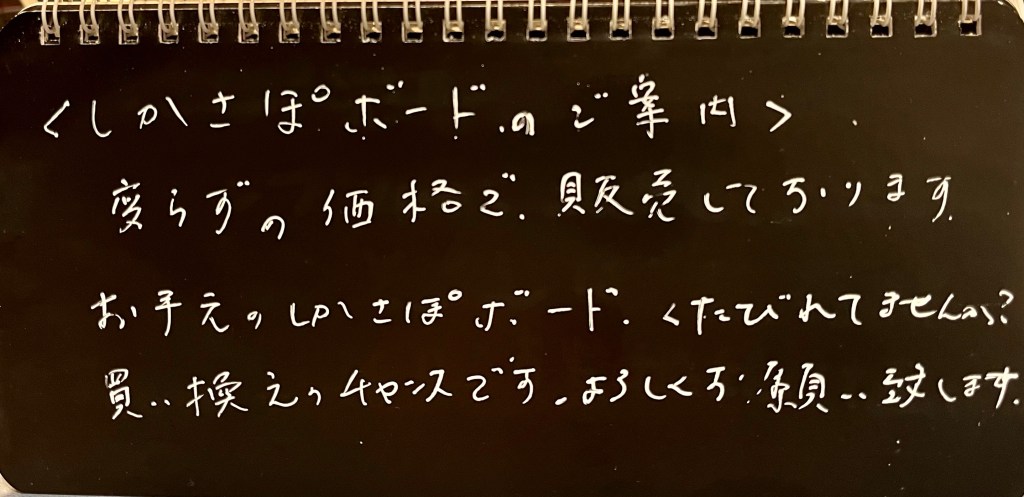 ＜しかさぽボードのご案内＞
変らずの価格で、販売しております。
お手元のしかさぽボード、くたびれてませんか?
買い換えのチャンスです。よろしくお願い致します。